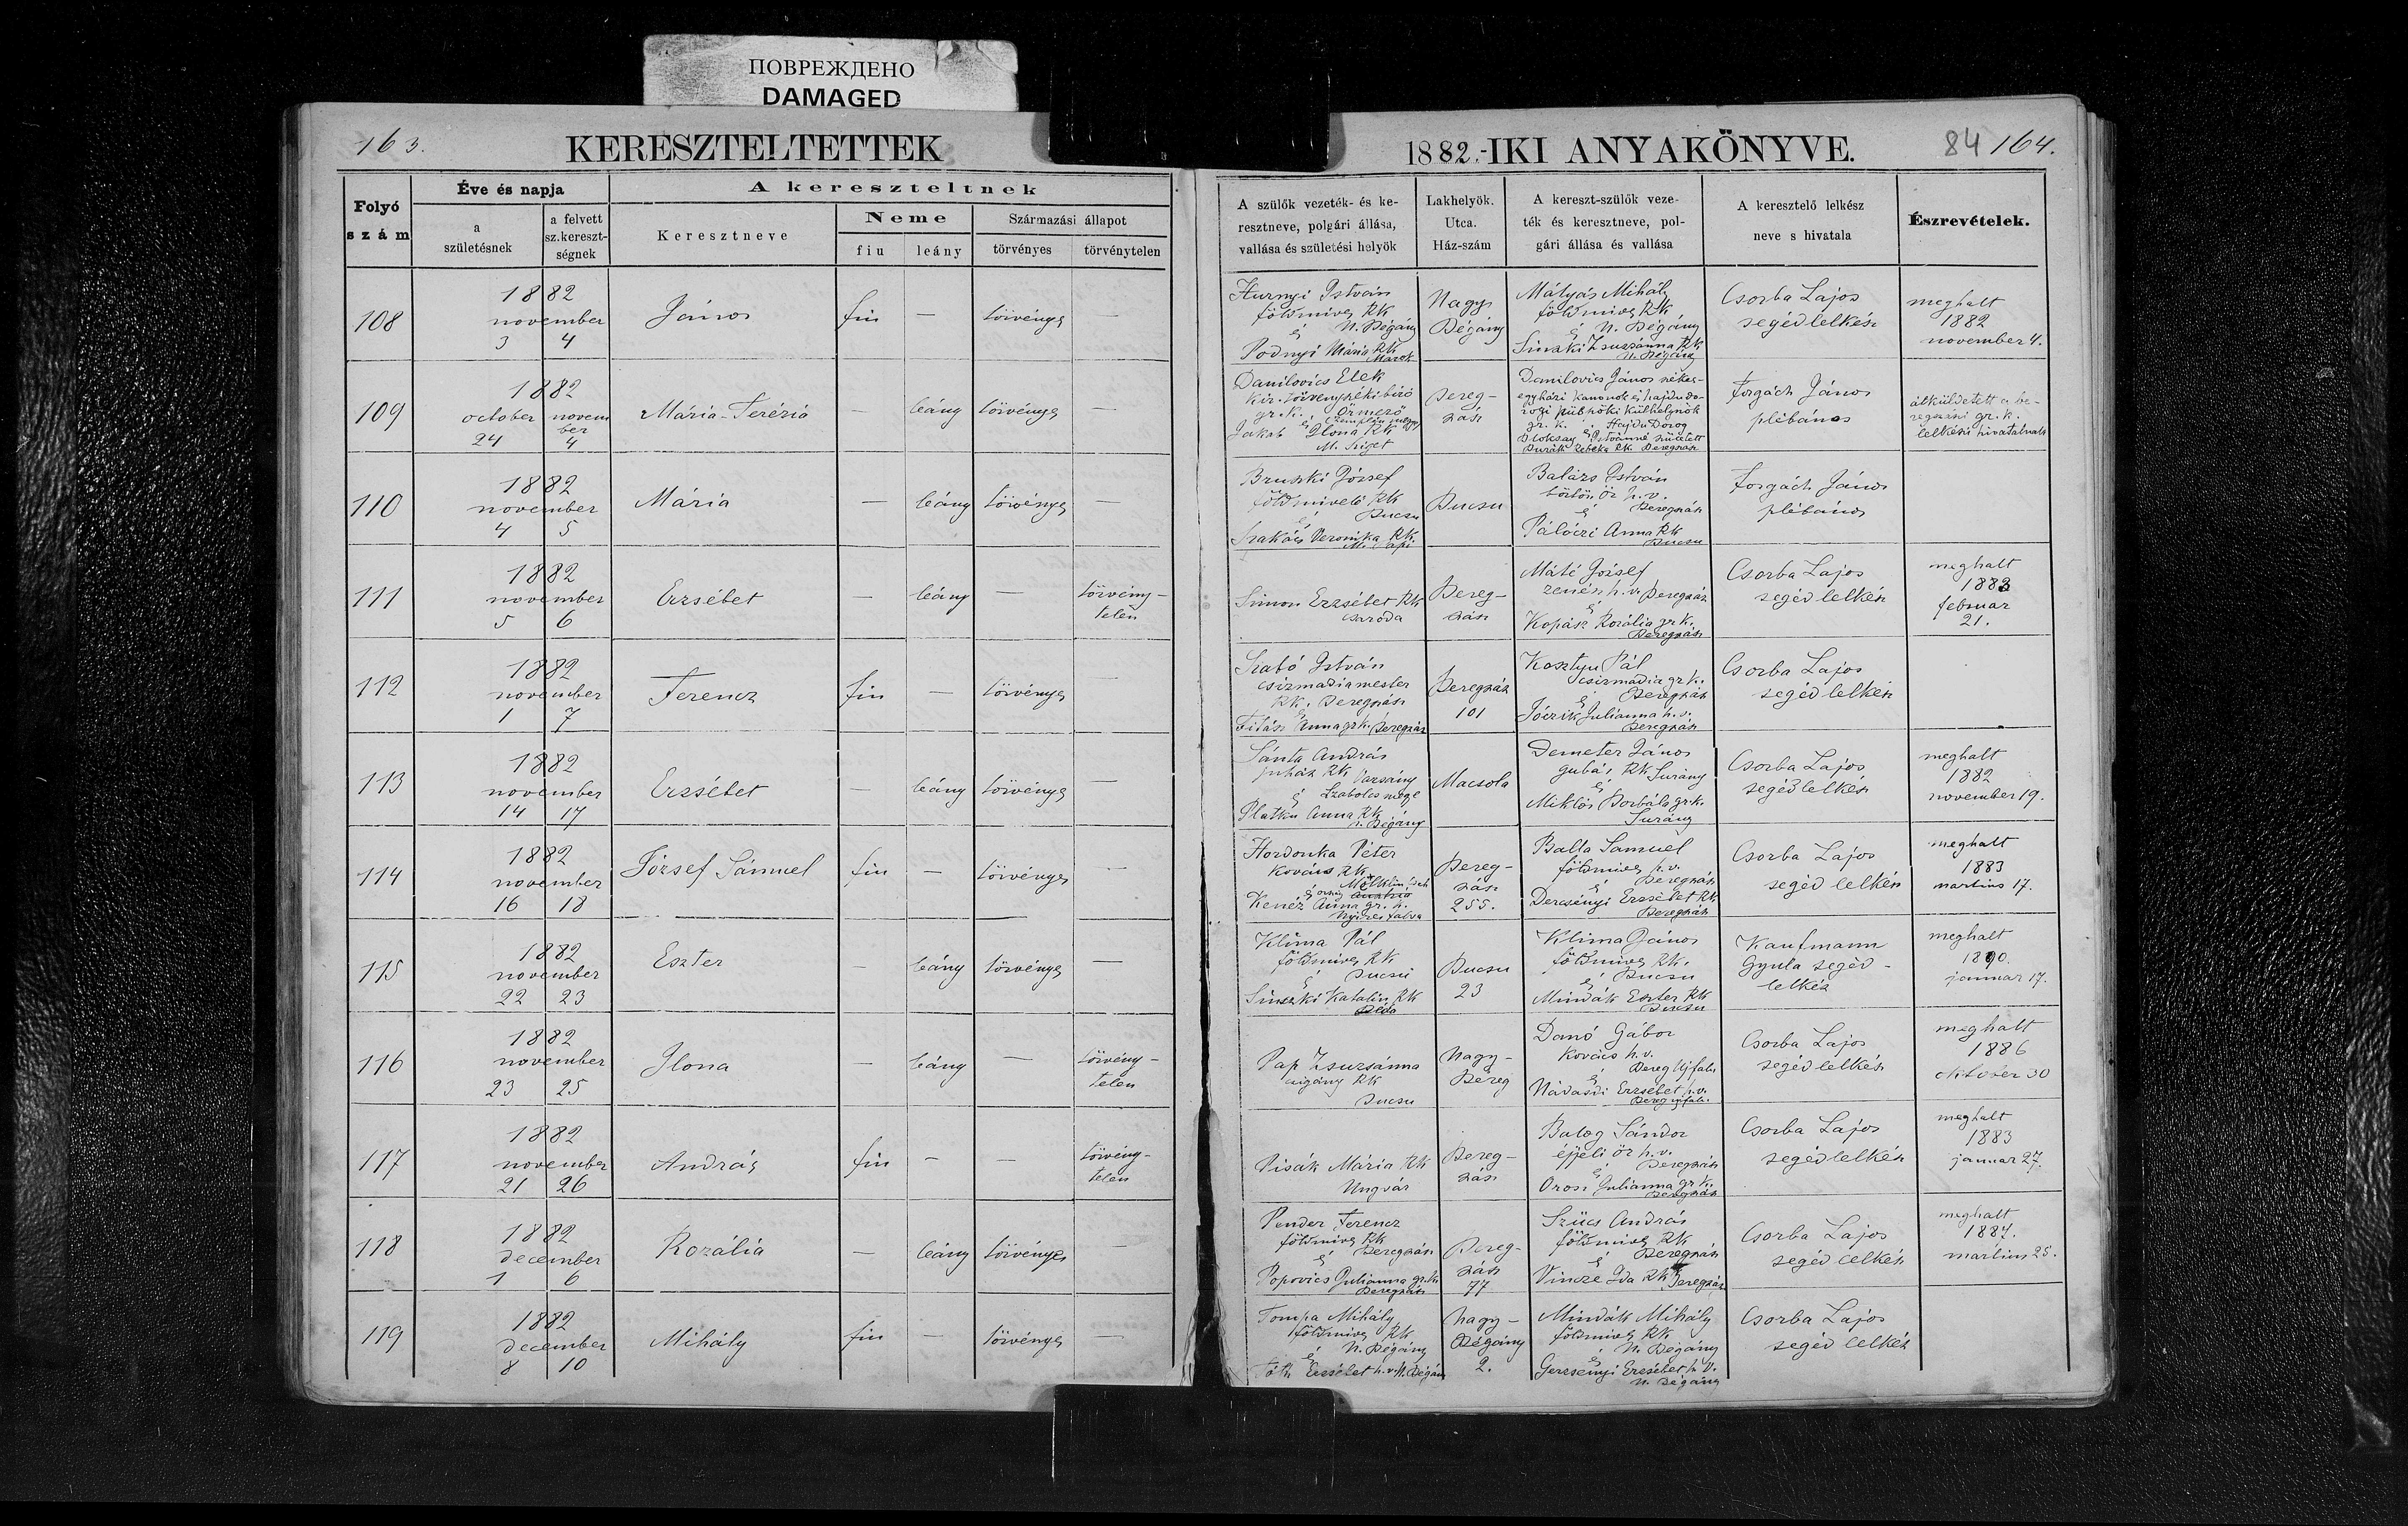 ПОВРЕЖДЕНО
DAMAGED
163.
KERESZTELTETTEK
1882.-IKI ANYAKÖNYVE.
84 164.
Folyó szám
Éve és napja
a születésnek
a felvett sz.keresztségnek
A kereszteltnek
Keresztneve
Neme
fiu
leány
Származási állapot
törvényes
törvénytelen
A szülők vezeték- és keresztneve, polgári állása, vallása és születési helyök
Lakhelyök. Utca. Ház-szám
A kereszt-szülők vezeték és keresztneve, polgári állása és vallása
A keresztelő lelkész neve s hivatala
Észrevételek.
108
1882
november
3 4
János
fiu
—
törvényes
—
Hurnyi István
földmives RK
és N. Bégány
Podnyi Mária RK
Marok
Nagy
Bégány
Mátyás Mihály
földmives RK
és N. Bégány
Sinszki Zsuzsánna RK
N. Bégány
Csorba Lajos
segédlelkész
meghalt
1882
november 4.
109
1882
october novem
ber
24 4
Mária-Terézia
—
leány
törvényes
—
Danilovics Elek
kir. törvényszéki biró
gr. k. Örmező
és Zemplén megye
Jakab Ilona RK
M. Sziget
Bereg-
szász
Danilovics János székes-
egyházi kanonok és hajdu do-
rogi püspöki külhelynök
gr. k. Hajdu Dorog
és
Istvánné született
Rebeka RK. Beregszász
Forgách János
plébános
átküldetett a be-
regszászi gr. k.
lelkészi hivatalnak
110
1882
november
4 5
Mária
—
leány
törvényes
—
Bruszki József
földmivelő RK
és Bucsu
Szakács Veronika RK
Bucsu
Balázs István
börtön őr h. v.
és Beregszász
Pálóczi Anna RK
Bucsu
Forgách János
plébános
111
1882
november
5 6
Erzsébet
—
leány
—
törvény-
telen
Simon Erzsébet RK
Bereg-
szász
Máté József
zenész h. v. Beregszász
és
Kopász Rozália gr k.
Beregszász
Csorba Lajos
segédlelkész
meghalt
1883
februar
21.
112
1882
november
1 7
Ferencz
fiu
—
törvényes
—
Szabó István
csizmadiamester
RK. Beregszász
és
Anna gr k. Beregszász
Beregszász
101
Kosztyu Pál
csizmadia gr k.
és Beregszász
Julianna h. v.
Beregszász
Csorba Lajos
segédlelkész
113
1882
november
14 17
Erzsébet
—
leány
törvényes
—
Sánta András
juhász RK Varsány
és Szabolcs megye
Platku Anna RK
N. Bégány
Macsola
Demeter János
gubás RK Surány
és
Miklós Borbála gr. k.
Surány
Csorba Lajos
segédlelkész
meghalt
1882
november 19.
114
1882
november
16 18
József Sámuel
fiu
—
törvényes
—
Hordonka Péter
kovács RK
és
Kenéz Anna gr. k.
Nyiresfalva
Bereg-
szász
255.
Balla Samuel
földmives h. v.
és Beregszász
Dercsényi Erzsébet RK
Beregszász
Csorba Lajos
segéd lelkész
meghalt
1883
martius 17.
115
1882
november
22 23
Eszter
—
leány
törvényes
—
Klima Pál
földmives RK
és Bucsu
Sinszki Katalin RK
Béda
Bucsu
23
Klima János
földmives RK.
és Bucsu
Mindák Eszter RK
Bucsu
Kaufmann
Gyula segéd-
lelkész
meghalt
1890.
januar 17.
116
1882
november
23 25
Ilona
—
leány
—
törvény-
telen
Pap Zsuzsánna
czigány RK
Bucsu
Nagy-
Bereg
Danó Gábor
kovács h. v.
és Bereg Ujfalu
Nádasdi Erzsébet h. v.
Bereg ujfalu
Csorba Lajos
segédlelkész
meghalt
1886
oktober 30
117
1882
november
21 26
András
fiu
—
—
törvény-
telen
Pisák Mária RK
Ungvár
Bereg-
szász
Balog Sándor
éjjeli őr h. v.
és Beregszász
Orosz Julianna gr k.
Beregszász
Csorba Lajos
segédlelkész
meghalt
1883
januar 27.
118
1882
december
1 6
Rozália
—
leány
törvényes
—
Pender Ferencz
földmives RK
és Beregszász
Popovics Julianna gr. k.
Beregszász
Bereg-
szász
77
Szücs András
földmives RK
és Beregszász
Vincze Ida RK Beregszász
Csorba Lajos
segéd lelkész
meghalt
1887.
martius 25.
119
1882
december
8 10
Mihály
fiu
—
törvényes
—
Tompa Mihály
földmives RK
és N. Bégány
Tóth Erzsébet h. v. N. Bégány
Nagy-
Bégány
2.
Mindák Mihály
földmives RK
és N. Bégány
Gerzsényi Erzsébet h. v.
N. Bégány
Csorba Lajos
segéd lelkész